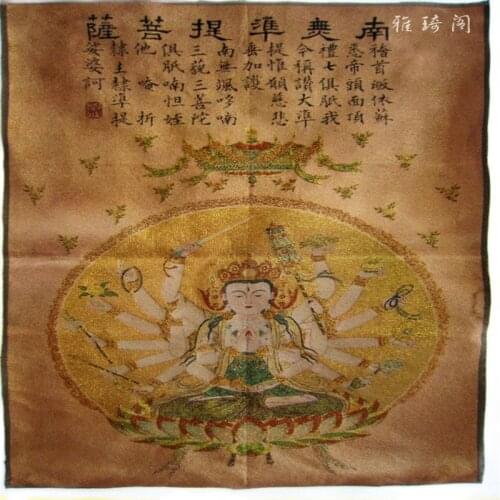 雅琦阁
南無準提菩薩
稽首皈依蘇
悉帝頭面頂
禮七俱胝我
今稱讚大準
提惟願慈悲
垂加護
南無颯哆喃
三藐三菩陀
俱胝喃怛姪
他 唵 折
隸主隸準提
娑婆訶